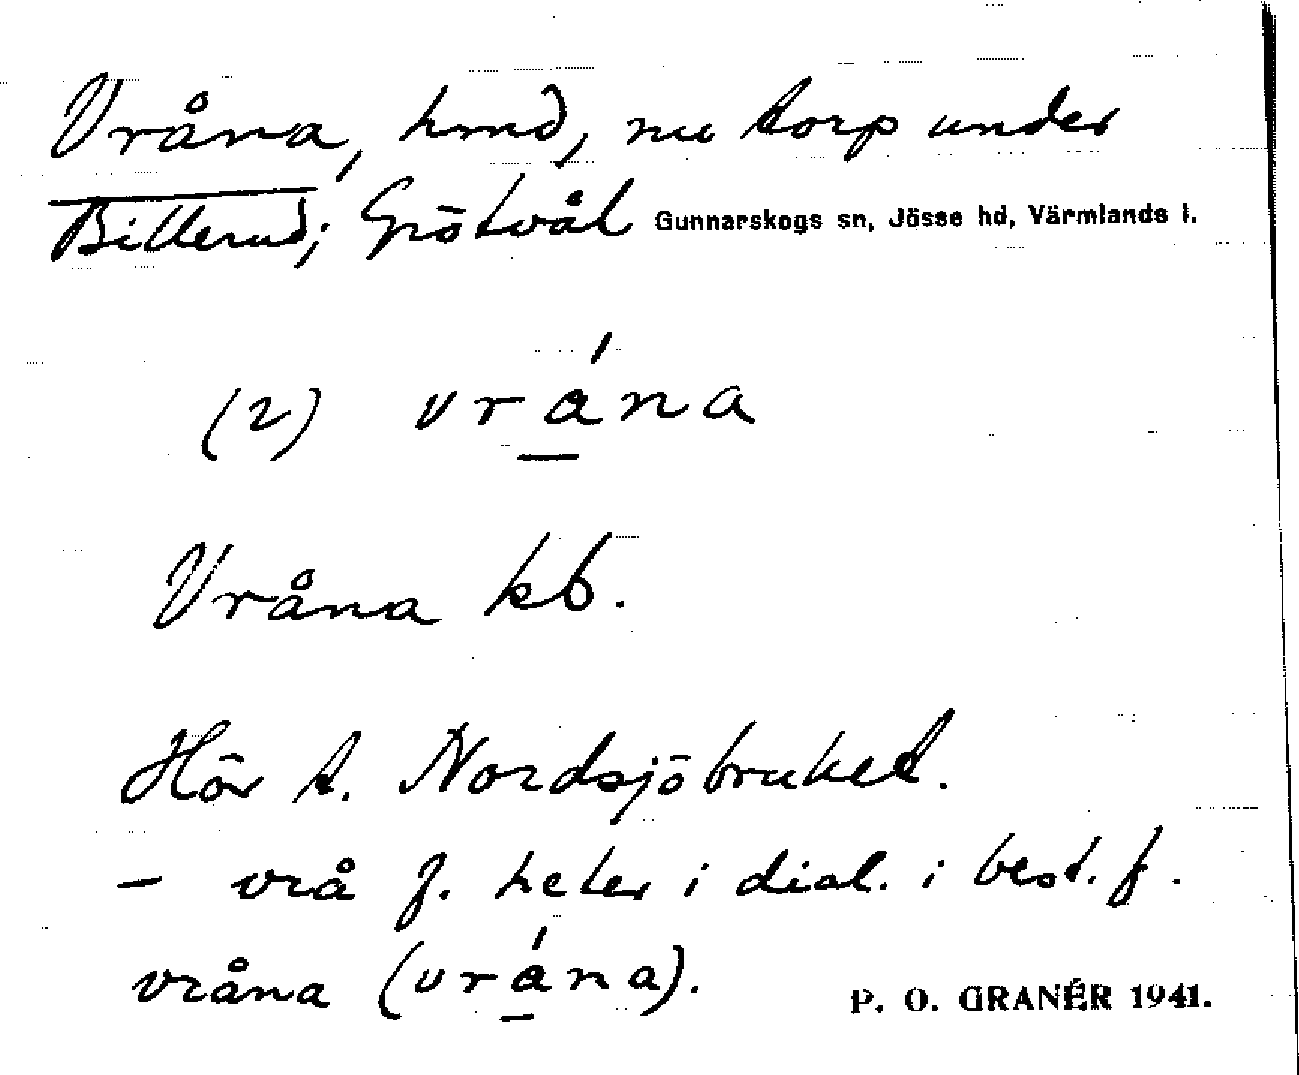 Vråna, hmd, nu torp under
Billerud; Grötvål Gunnarskogs sn, Jösse hd, Värmlands l.
(2) vrána
Vråna kb.
Hör t. Nordsjöbruket.
– vrå f. heter i dial. i best. f.
vråna (vrána). P. O. GRANÉR 1941.